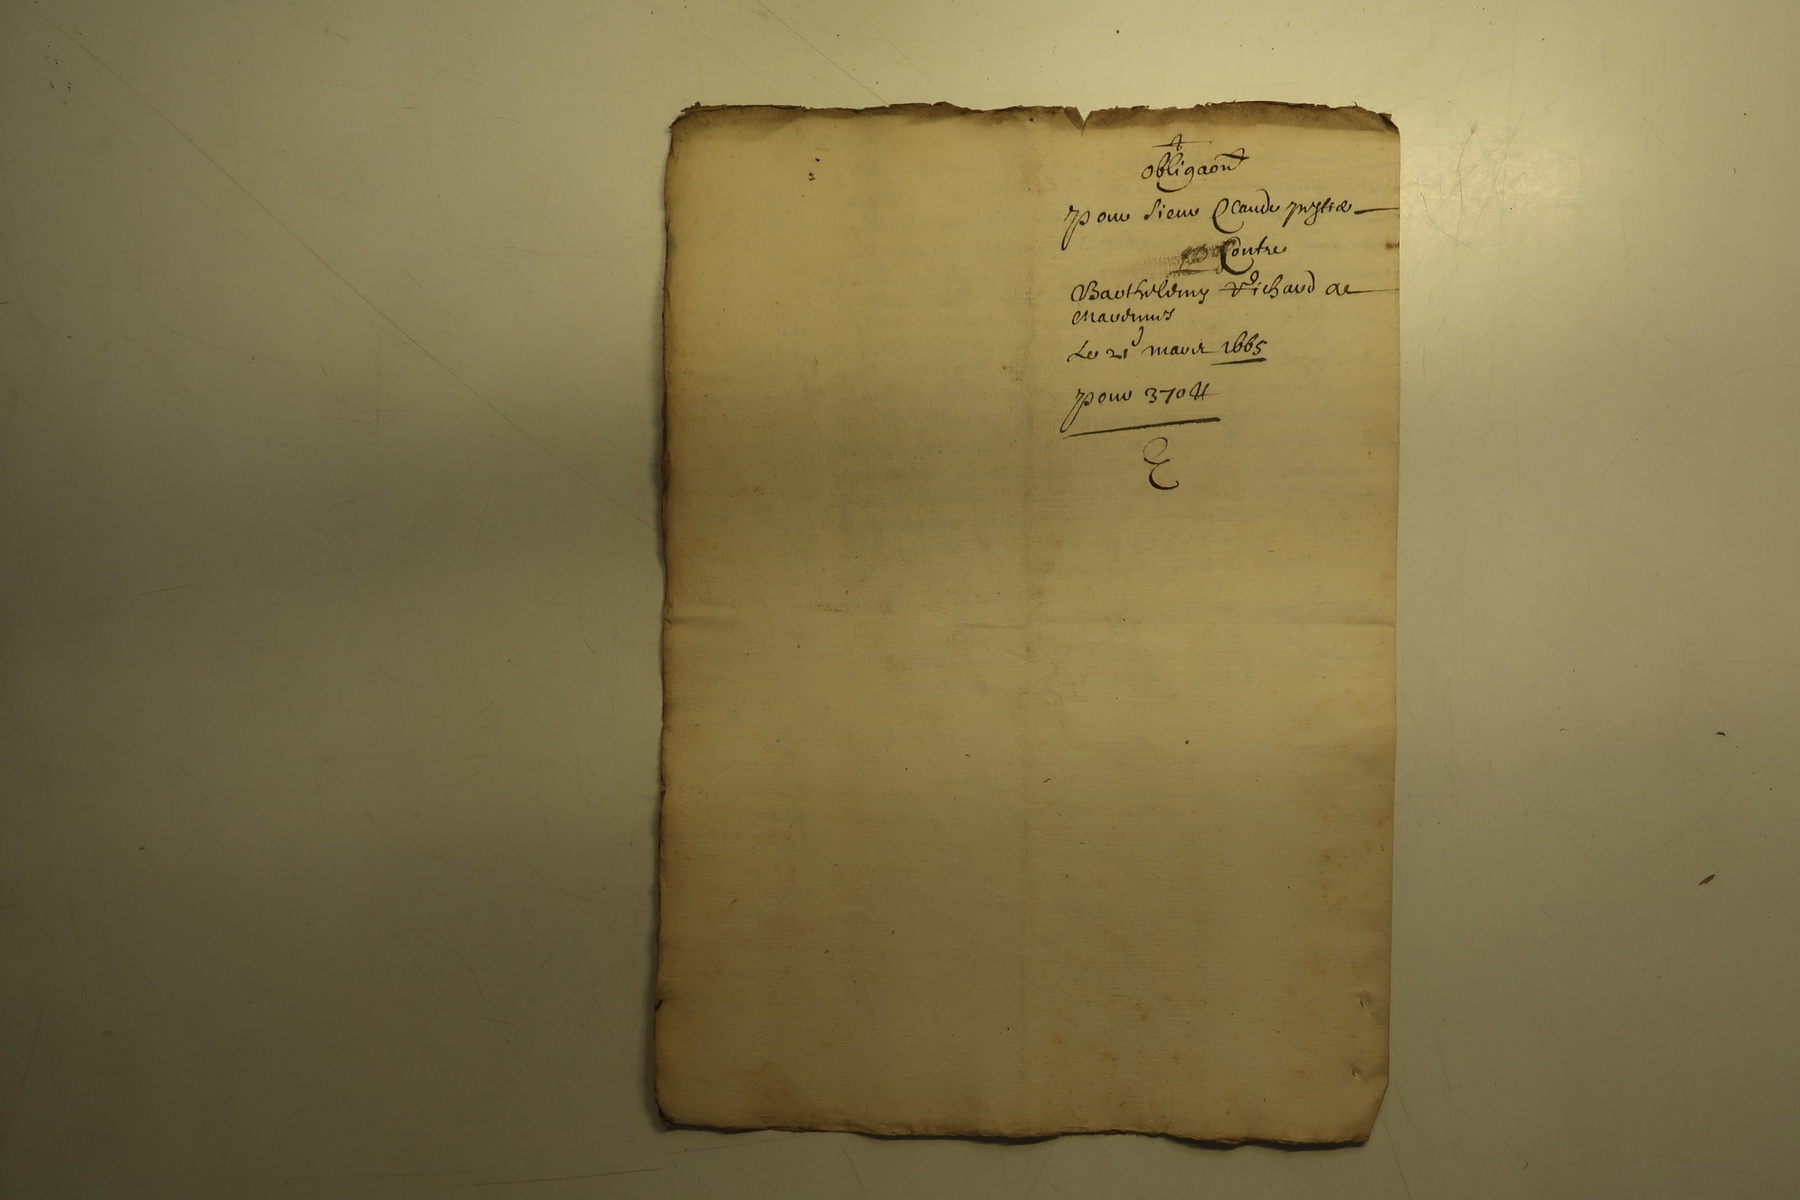 obligaon
pour sieur Claude
Contre
Barthelemy Richard de
Le 21 mars 1665
pour 370 ₶
E